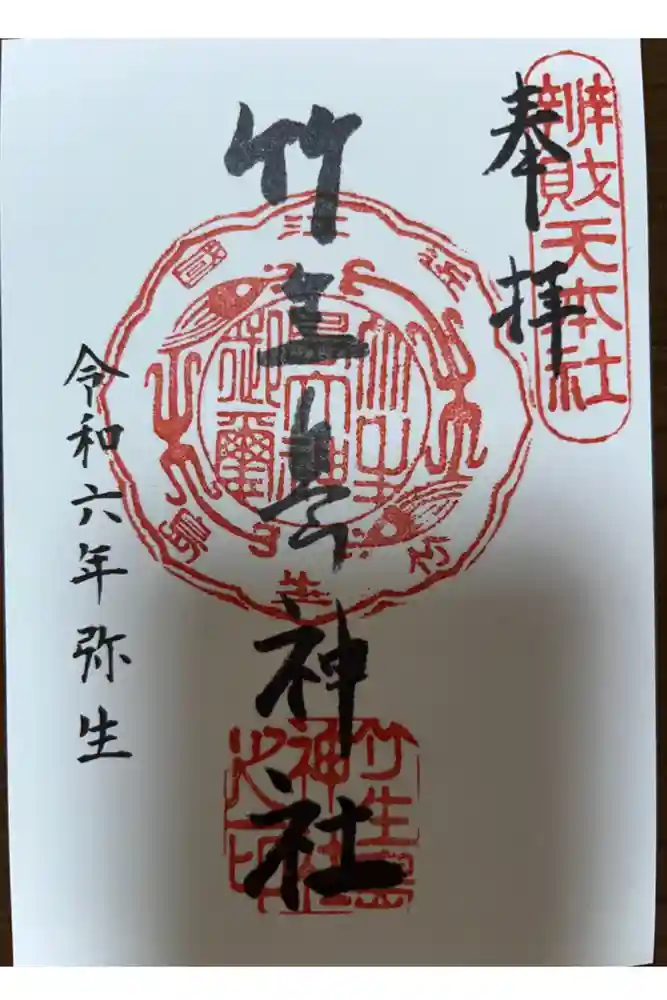 辨財天本社
奉拝
竹生島神社
近江國
竹生島
令和六年弥生